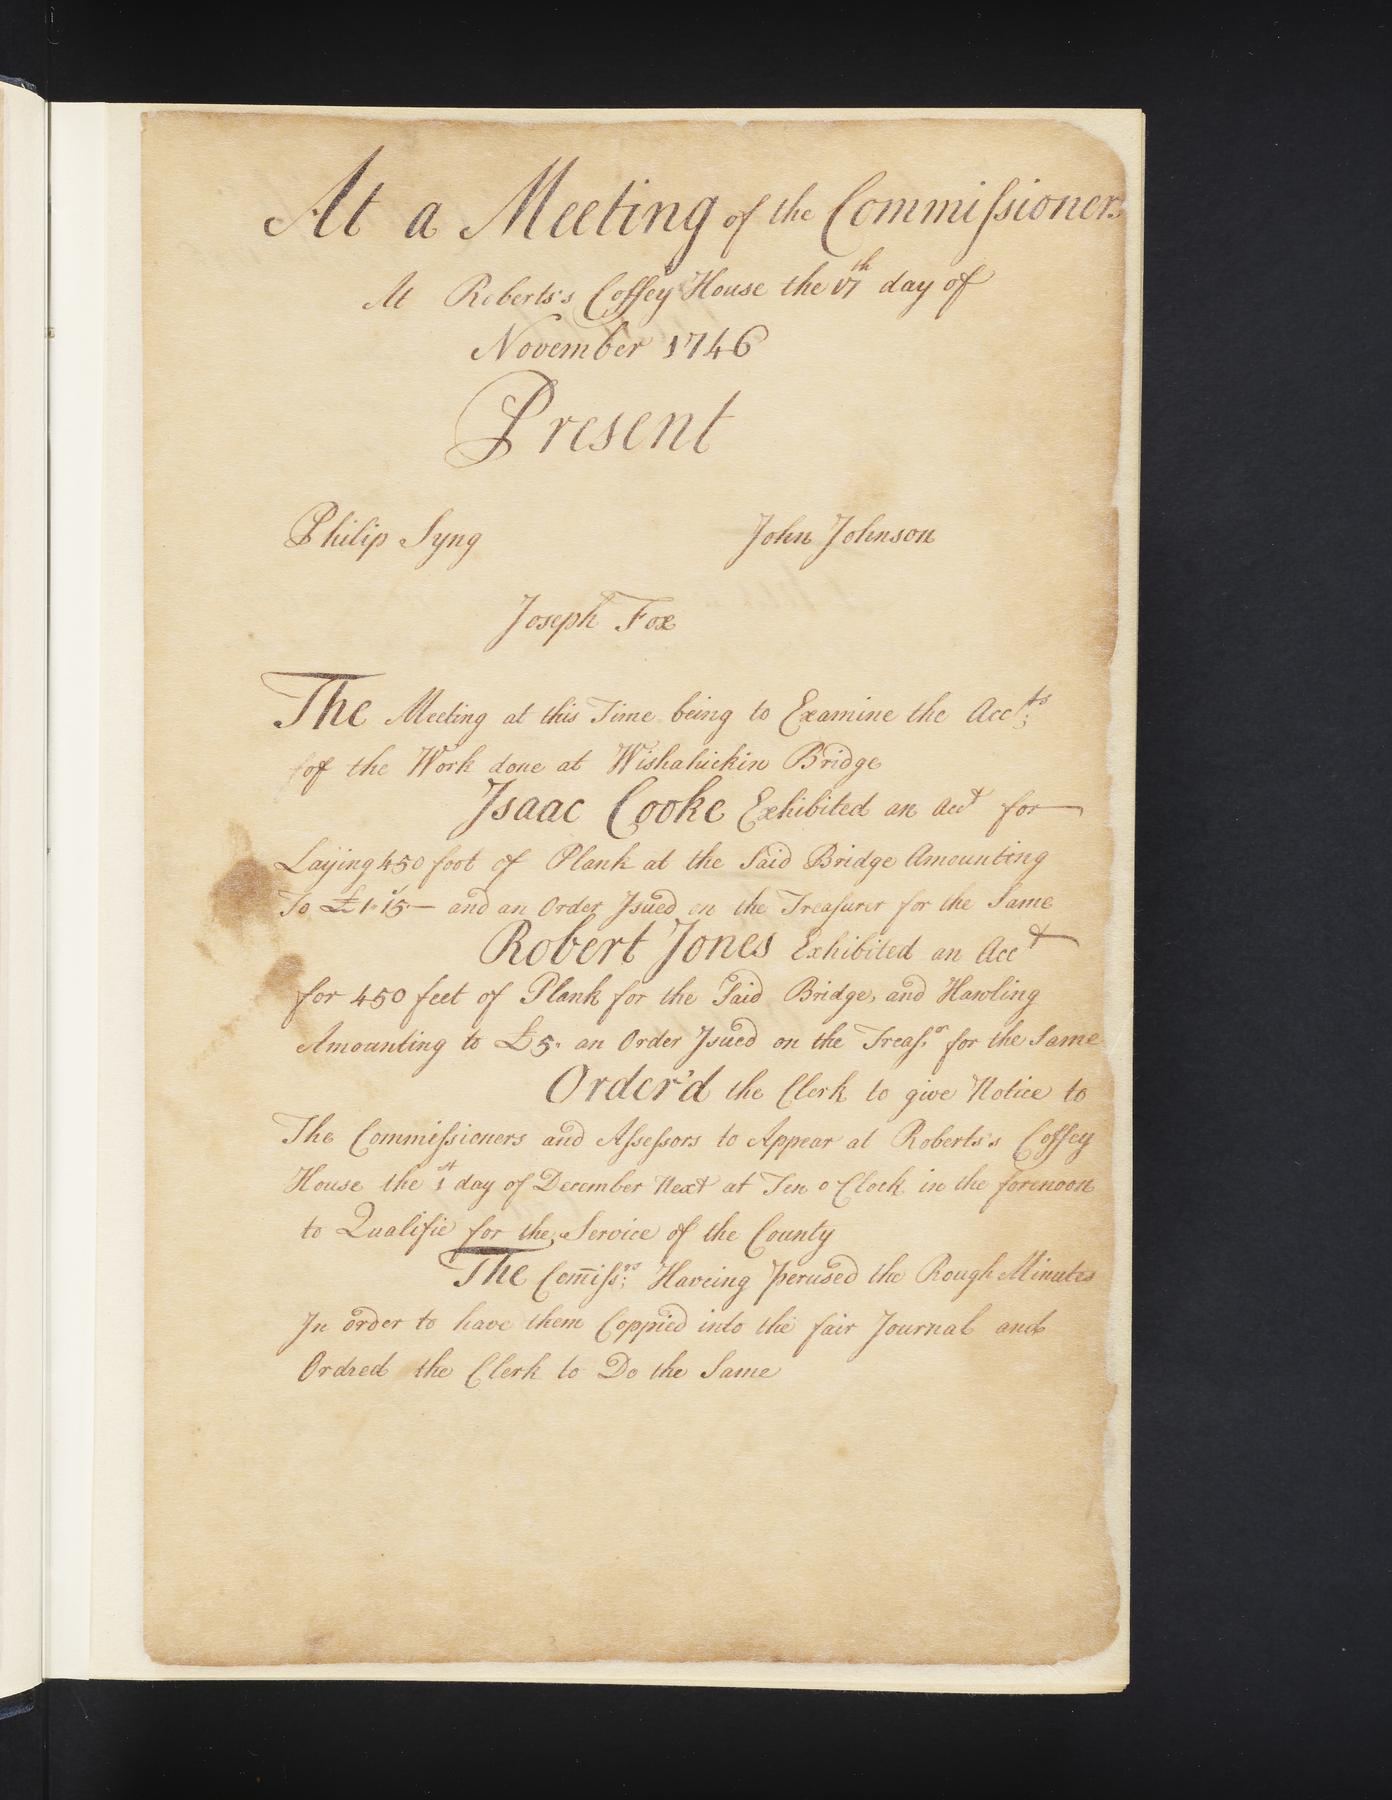 At a Meeting of the Commiſsioners
At Roberts's Coffey House the 17th day of
November 1746
Present
Philip Syng John Johnson
Joseph Fox
The Meeting at this Time being to Examine the Accts:
of the Work done at Wishahickin Bridge
Isaac Cooke Exhibited an acct for
Laying 450 foot of Plank at the Said Bridge Amounting
To £1..15.— and an Order Jsued on the Treaſurer for the Same
Robert Jones Exhibited an Acct
for 450 feet of Plank for the Said Bridge, and Hawling
Amounting to £5. an Order Jsued on the Treaſ.r for the Same
Order'd the Clerk to give Notice to
The Commiſsioners and Aſseſsors to Appear at Roberts's Coffey
House the 1st day of December Next at Ten o Clock in the forenoon
to Qualifie for the Service of the County
The Com̄iſsrs: Haveing perused the Rough Minutes
In order to have them Coppied into the fair Journal and
Ordred the Clerk to Do the Same